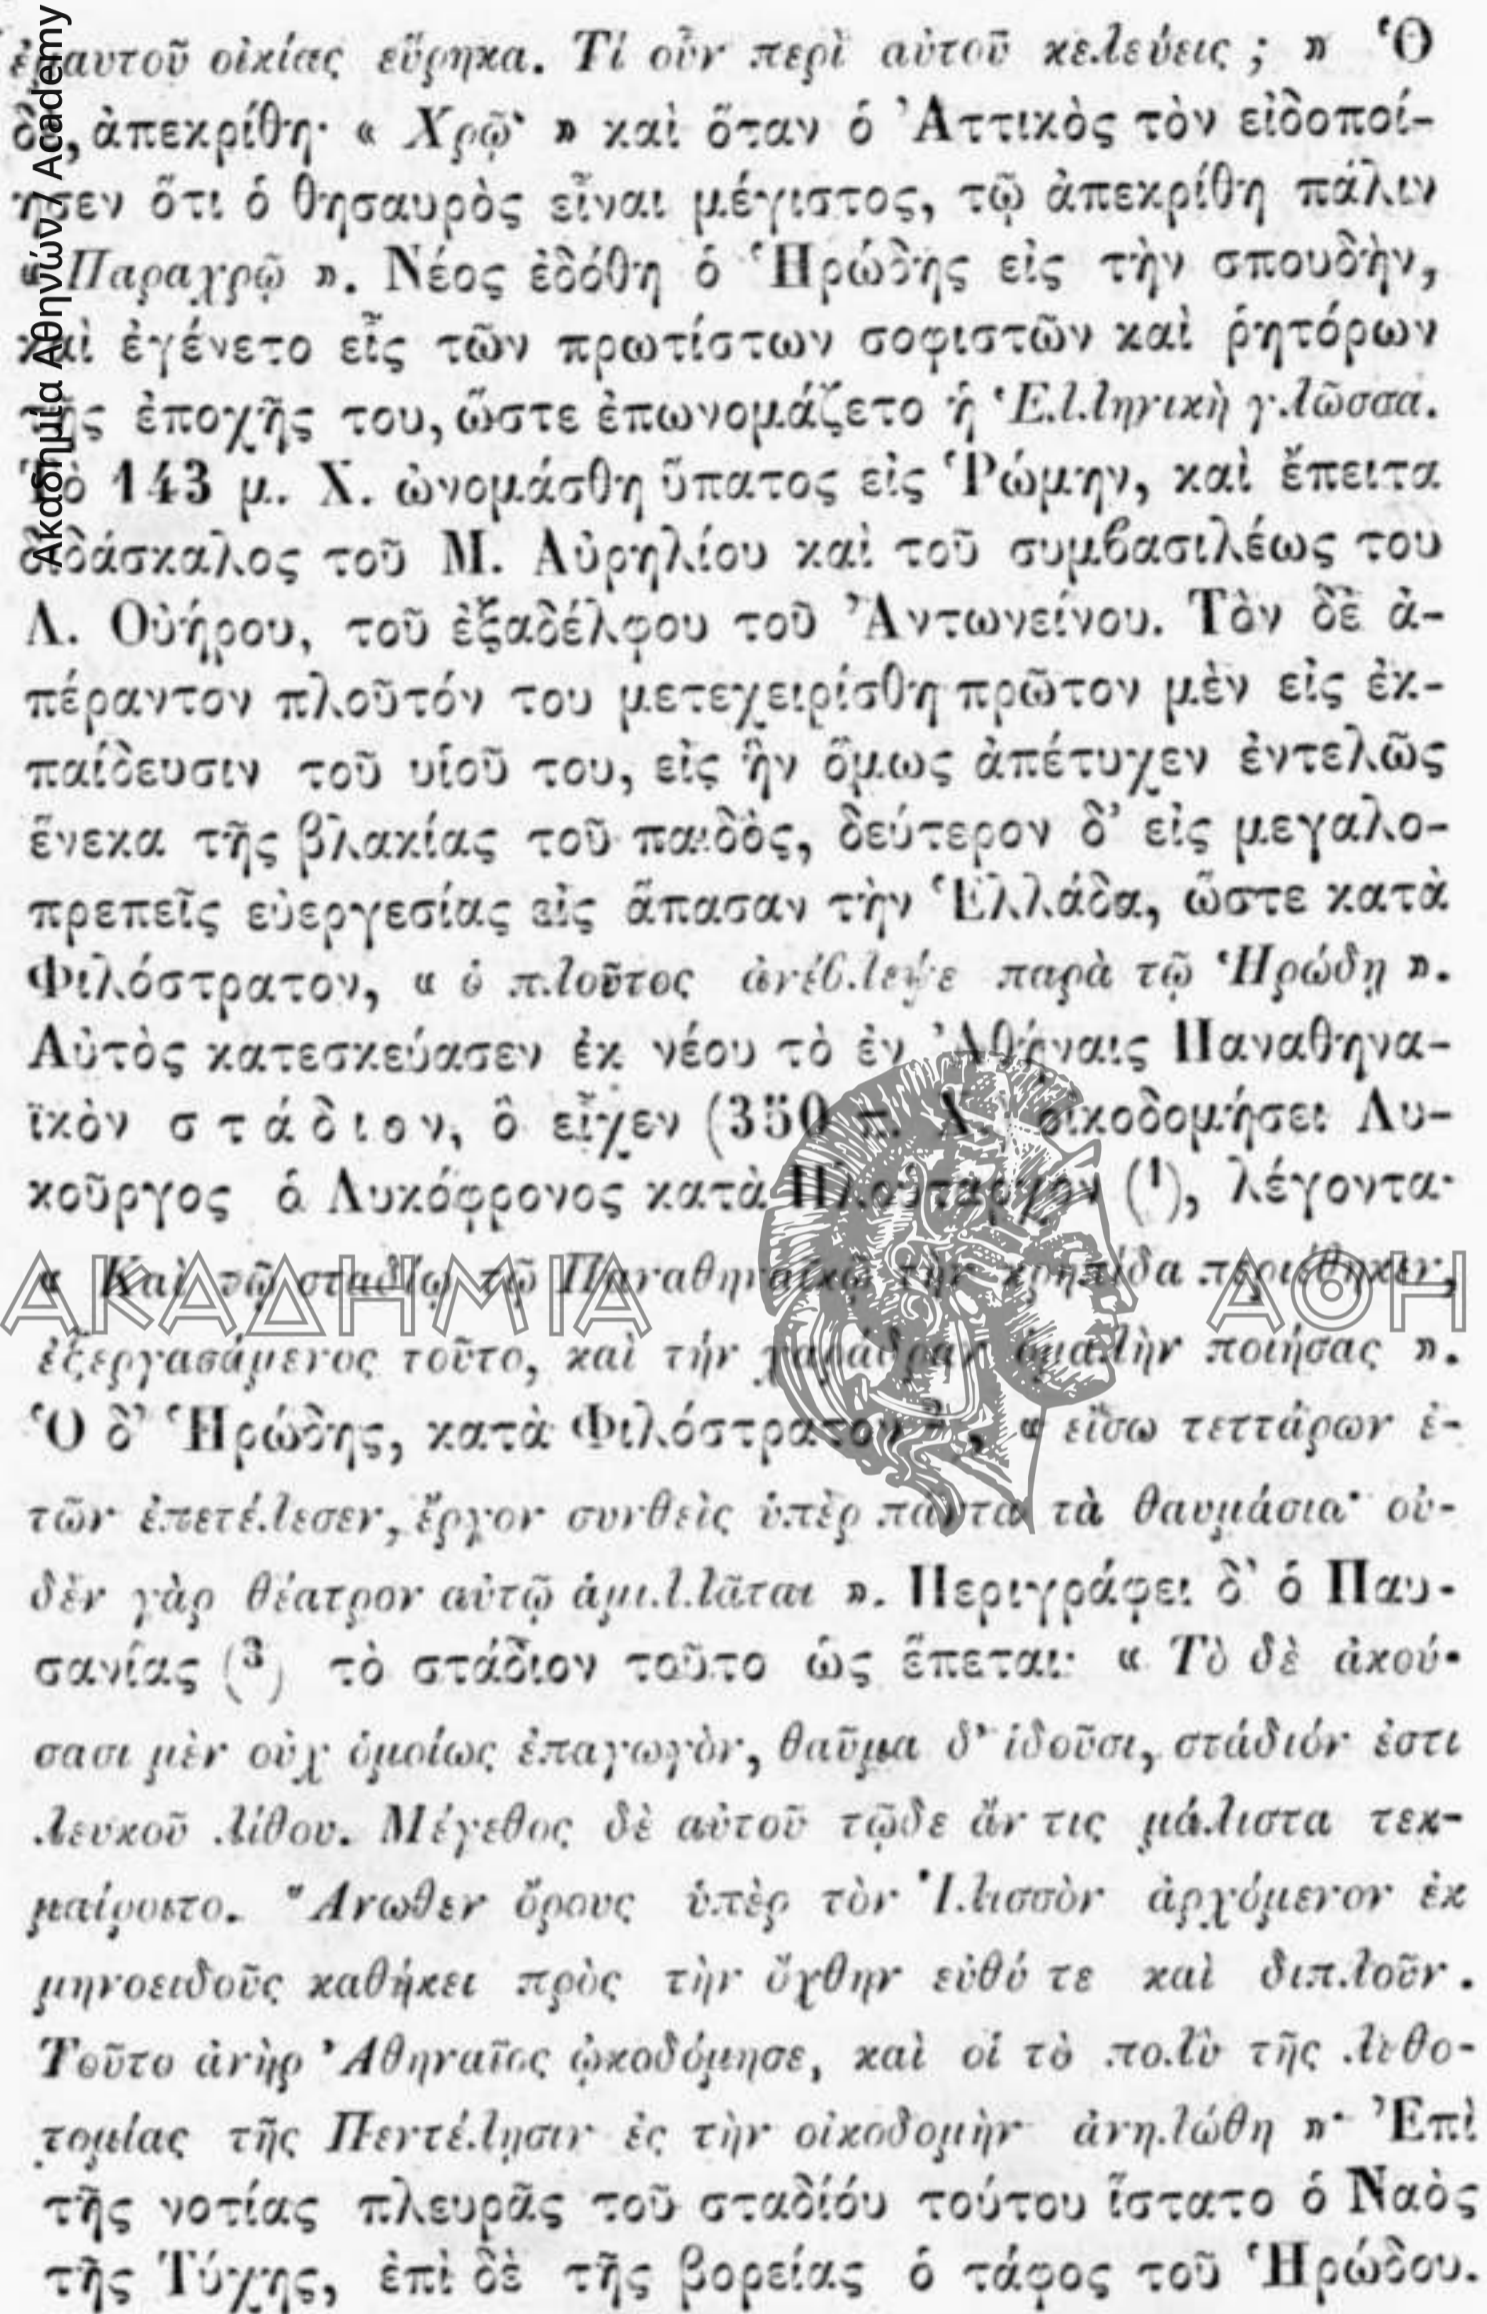 ἐμαυτοῦ οἰκίας εὕρηκα. Τί οὖν περὶ αὐτοῦ κελεύεις ; » Ὁ
δὲ, ἀπεκρίθη· « Χρῶ· » καὶ ὅταν ὁ Ἀττικὸς τὸν εἰδοποί-
ησεν ὅτι ὁ θησαυρὸς εἶναι μέγιστος, τῷ ἀπεκρίθη πάλιν
« Παραχρῶ ». Νέος ἐδόθη ὁ Ἡρώδης εἰς τὴν σπουδὴν,
καὶ ἐγένετο εἷς τῶν πρωτίστων σοφιστῶν καὶ ῥητόρων
τῆς ἐποχῆς του, ὥστε ἐπωνομάζετο ἡ Ἑλληνικὴ γλῶσσα.
Τὸ 143 μ. Χ. ὠνομάσθη ὕπατος εἰς Ῥώμην, καὶ ἔπειτα
διδάσκαλος τοῦ Μ. Αὐρηλίου καὶ τοῦ συμβασιλέως του
Λ. Οὐήρου, τοῦ ἐξαδέλφου τοῦ Ἀντωνείνου. Τὸν δὲ ἀ-
πέραντον πλοῦτόν του μετεχειρίσθη πρῶτον μὲν εἰς ἐκ-
παίδευσιν τοῦ υἱοῦ του, εἰς ἣν ὅμως ἀπέτυχεν ἐντελῶς
ἕνεκα τῆς βλακίας τοῦ παιδὸς, δεύτερον δ' εἰς μεγαλο-
πρεπεῖς εὐεργεσίας εἰς ἅπασαν τὴν Ἑλλάδα, ὥστε κατὰ
Φιλόστρατον, « ὁ πλοῦτος ἀνέβλεψε παρὰ τῷ Ἡρώδῃ ».
Αὐτὸς κατεσκεύασεν ἐκ νέου τὸ ἐν Ἀθήναις Παναθηνα-
ϊκὸν στάδιον, ὃ εἶχεν (350 π. Χ.) οἰκοδομήσει Λυ-
κοῦργος ὁ Λυκόφρονος κατὰ Πλούταρχον (1), λέγοντα·
« Καὶ τῷ σταδίῳ τῷ Παναθηναϊκῷ τὴν κρηπίδα περιέθηκεν,
ἐξεργασάμενος τοῦτο, καὶ τήν χαράδραν ὁμαλὴν ποιήσας ».
Ὁ δ' Ἡρώδης, κατὰ Φιλόστρατον (2), « εἴσω τεττάρων ἐ-
τῶν ἐπετέλεσεν, ἔργον συνθεὶς ὑπὲρ πάντα τὰ θαυμάσια· οὐ-
δὲν γὰρ θέατρον αὐτῷ ἁμιλλᾶται ». Περιγράφει δ' ὁ Παυ-
σανίας (3) τὸ στάδιον τοῦτο ὡς ἕπεται· « Τὸ δὲ ἀκού-
σασι μὲν οὐχ ὁμοίως ἐπαγωγὸν, θαῦμα δ' ἰδοῦσι, στάδιόν ἐστι
λευκοῦ λίθου. Μέγεθος δὲ αὐτοῦ τῷδε ἄν τις μάλιστα τεκ-
μαίροιτο. Ἄνωθεν ὄρους ὑπὲρ τὸν Ἰλισσὸν ἀρχόμενον ἐκ
μηνοειδοῦς καθήκει πρὸς τὴν ὄχθην εὐθύ τε καὶ διπλοῦν.
Τοῦτο ἀνὴρ Ἀθηναῖος ᾠκοδόμησε, καὶ οἱ τὸ πολὺ τῆς λιθο-
τομίας τῆς Πεντέλησιν ἐς τὴν οἰκοδομὴν ἀνηλώθη »· Ἐπὶ
τῆς νοτίας πλευρᾶς τοῦ σταδίου τούτου ἵστατο ὁ Ναὸς
τῆς Τύχης, ἐπὶ δὲ τῆς βορείας ὁ τάφος τοῦ Ἡρώδου.
Ακαδημία Αθηνών / Academy
ΑΚΑΔΗΜΙΑ ΑΘΗ